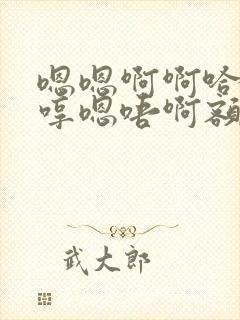 嗯嗯啊啊哈
哼嗯唔啊额
武大郎